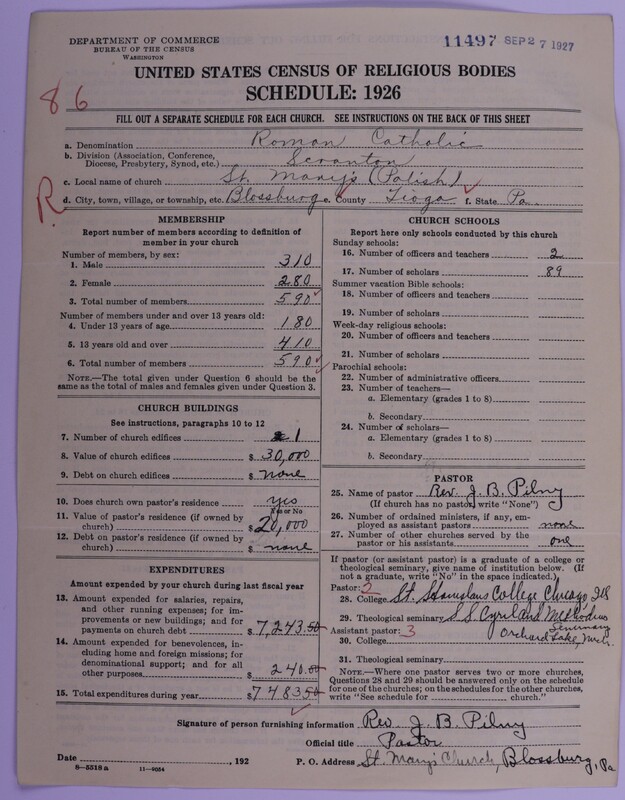 DEPARTMENT OF COMMERCE
BUREAU OF THE CENSUS
WASHINGTON
11497 SEP 27 1927
UNITED STATES CENSUS OF RELIGIOUS BODIES
SCHEDULE: 1926
86
FILL OUT A SEPARATE SCHEDULE FOR EACH CHURCH. SEE INSTRUCTIONS ON THE BACK OF THIS SHEET
a. Denomination Roman Catholic
b. Division (Association, Conference, Diocese, Presbytery, Synod, etc.) Scranton
c. Local name of church St. Mary's (Polish)
R
d. City, town, village, or township, etc. Blossburg e. County Tioga f. State Pa.
MEMBERSHIP
Report number of members according to definition of
member in your church
Number of members, by sex:
1. Male 310
2. Female 280
3. Total number of members 590
Number of members under and over 13 years old:
4. Under 13 years of age 180
5. 13 years old and over 410
6. Total number of members 590
NOTE.—The total given under Question 6 should be the
same as the total of males and females given under Question 3.
CHURCH BUILDINGS
See instructions, paragraphs 10 to 12
7. Number of church edifices 1
8. Value of church edifices $ 30,000
9. Debt on church edifices $ none
10. Does church own pastor's residence yes
Yes or No
11. Value of pastor's residence (if owned by
church) $ 20,000
12. Debt on pastor's residence (if owned by
church) $ none
EXPENDITURES
Amount expended by your church during last fiscal year
13. Amount expended for salaries, repairs,
and other running expenses; for im-
provements or new buildings; and for
payments on church debt $ 7,243.50
14. Amount expended for benevolences, in-
cluding home and foreign missions; for
denominational support; and for all
other purposes $ 240.00
15. Total expenditures during year $ 7483.50
CHURCH SCHOOLS
Report here only schools conducted by this church
Sunday schools:
16. Number of officers and teachers 2
17. Number of scholars 89
Summer vacation Bible schools:
18. Number of officers and teachers
19. Number of scholars
Week-day religious schools:
20. Number of officers and teachers
21. Number of scholars
Parochial schools:
22. Number of administrative officers
23. Number of teachers—
a. Elementary (grades 1 to 8)
b. Secondary
24. Number of scholars—
a. Elementary (grades 1 to 8)
b. Secondary
PASTOR
25. Name of pastor Rev. J. B. Pilny
(If church has no pastor, write "None")
26. Number of ordained ministers, if any, em-
ployed as assistant pastors none
27. Number of other churches served by the
pastor or his assistants one
If pastor (or assistant pastor) is a graduate of a college or
theological seminary, give name of institution below. (If
not a graduate, write "No" in the space indicated.)
Pastor: 2
28. College St. Stanislaus College Chicago Ill
29. Theological seminary S.S. Cyril and Methodius
Seminary
Assistant pastor: 3 Orchard Lake, Mich.
30. College
31. Theological seminary
NOTE.—Where one pastor serves two or more churches,
Questions 28 and 29 should be answered only on the schedule
for one of the churches; on the schedules for the other churches,
write "See schedule for church."
Signature of person furnishing information Rev. J. B. Pilny
Official title Pastor
Date , 192 P. O. Address St. Mary's Church, Blossburg, Pa
8—5318 a 11—9054